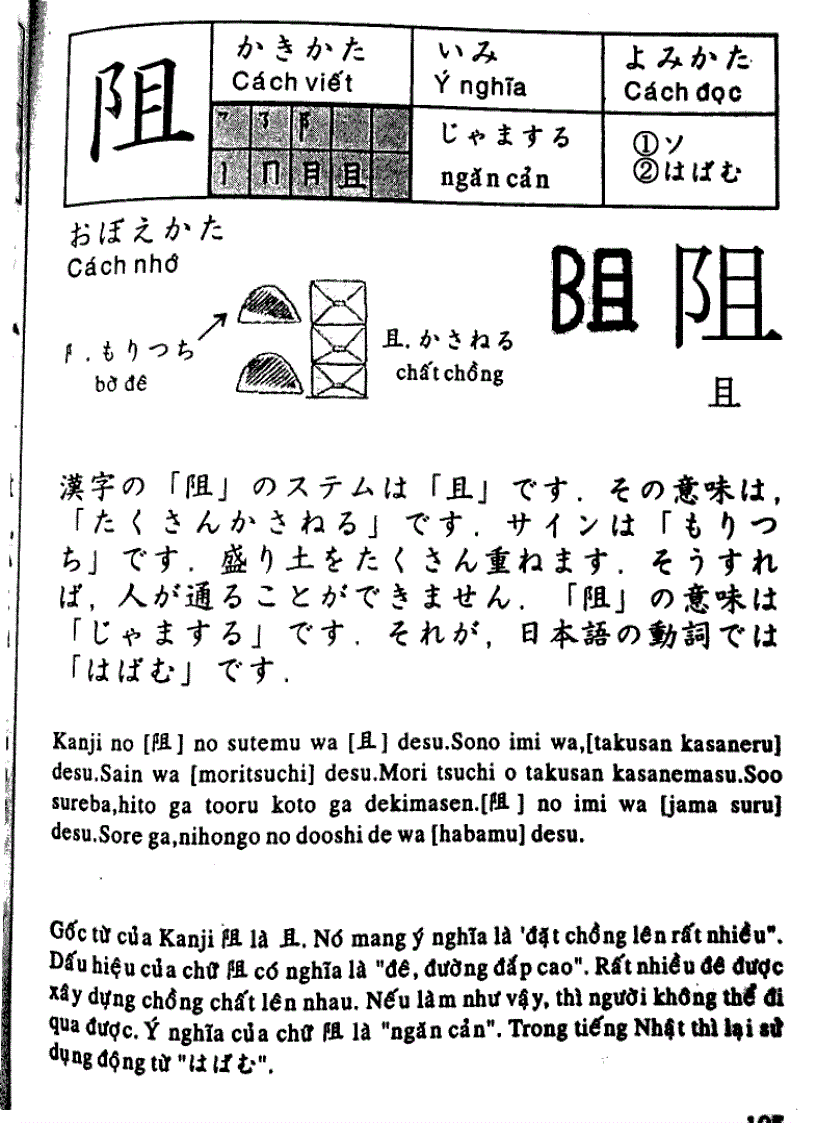 阻
かきかた
Cách viết
いみ
Ý nghĩa
よみかた
Cách đọc
じゃまする
ngăn cản
①ソ
②はばむ
おぼえかた
Cách nhớ
阝.もりつち
bờ đê
且.かさねる
chất chồng
阻 阻
且
漢字の「阻」のステムは「且」です.その意味は,
「たくさんかさねる」です.サインは「もりつ
ち」です.盛り土をたくさん重ねます.そうすれ
ば,人が通ることができません.「阻」の意味は
「じゃまする」です.それが,日本語の動詞では
「はばむ」です.
Kanji no [阻] no sutemu wa [且] desu.Sono imi wa,[takusan kasaneru]
desu.Sain wa [moritsuchi] desu.Mori tsuchi o takusan kasanemasu.Soo
sureba,hito ga tooru koto ga dekimasen.[阻] no imi wa [jama suru]
desu.Sore ga,nihongo no dooshi de wa [habamu] desu.
Gốc từ của Kanji 阻 là 且. Nó mang ý nghĩa là 'đặt chồng lên rất nhiều".
Dấu hiệu của chữ 阻 có nghĩa là "đê, đường đắp cao". Rất nhiều đê được
xây dựng chồng chất lên nhau. Nếu làm như vậy, thì người không thể đi
qua được. Ý nghĩa của chữ 阻 là "ngăn cản". Trong tiếng Nhật thì lại sử
dụng động từ "はばむ".